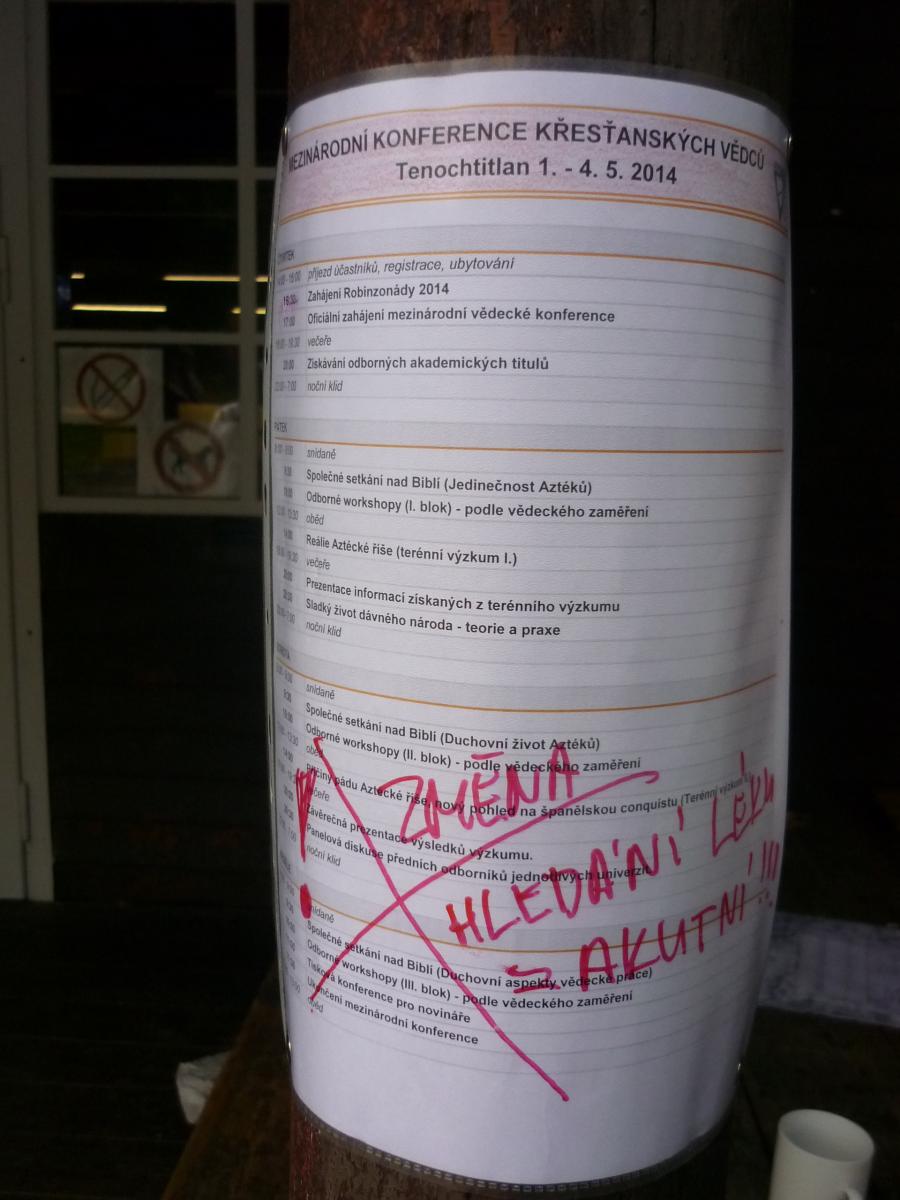 MEZINÁRODNÍ KONFERENCE KŘESŤANSKÝCH VĚDCŮ
Tenochtitlan 1. - 4. 5. 2014
příjezd účastníků, registrace, ubytování
16:30 Zahájení Robinzonády 2014
17:00 Oficiální zahájení mezinárodní vědecké konference
večeře
20:00 Získávání odborných akademických titulů
22:00 - 7:00 noční klid
PÁTEK
snídaně
Společné setkání nad Biblí (Jedinečnost Aztéků)
Odborné workshopy (I. blok) - podle vědeckého zaměření
oběd
Reálie Aztécké říše (terénní výzkum I.)
večeře
Prezentace informací získaných z terénního výzkumu
Sladký život dávného národa - teorie a praxe
noční klid
snídaně
Společné setkání nad Biblí (Duchovní život Aztéků)
Odborné workshopy (II. blok) - podle vědeckého zaměření
oběd
Příčiny pádu Aztécké říše, nový pohled na španělskou conquistu (Terénní výzkum
večeře
Závěrečná prezentace výsledků výzkumu.
Panelová diskuse předních odborníků jednotlivých univerzit
noční klid
snídaně
Společné setkání nad Biblí (Duchovní aspekty vědecké práce)
Odborné workshopy (III. blok) - podle vědeckého zaměření
Tisková konference pro novináře
Ukončení mezinárodní konference
oběd
ZMĚNA
HLEDÁNÍ LÉKU
AKUTNÍ!!!